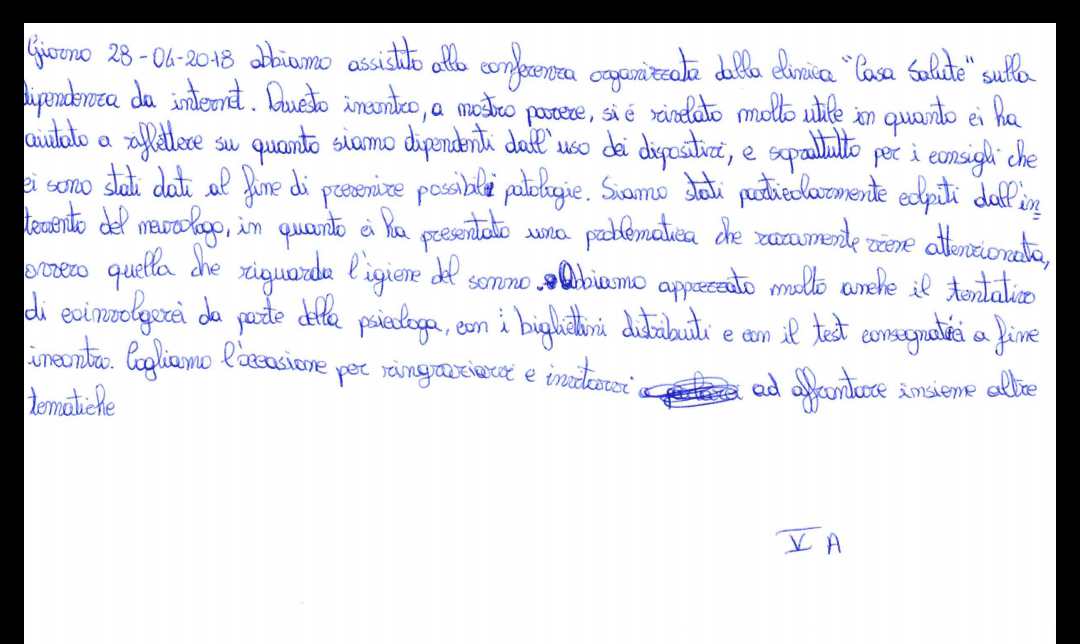 Giorno 28-04-2018 abbiamo assistito alla conferenza organizzata dalla clinica "Casa Salute" sulla
dipendenza da internet. Questo incontro, a nostro parere, si è rivelato molto utile in quanto ci ha
aiutato a riflettere su quanto siamo dipendenti dall'uso dei dispositivi, e soprattutto per i consigli che
ci sono stati dati al fine di prevenire possibili patologie. Siamo stati particolarmente colpiti dall'in=
tervento del neurologo, in quanto ci ha presentato una problematica che raramente viene attenzionata,
ovvero quella che riguarda l'igiene del sonno. Abbiamo apprezzato molto anche il tentativo
di coinvolgerci da parte della psicologa, con i bigliettini distribuiti e con il test consegnatoci a fine
incontro. Cogliamo l'occasione per ringraziarvi e invitarvi ad affrontare insieme altre
tematiche
V A